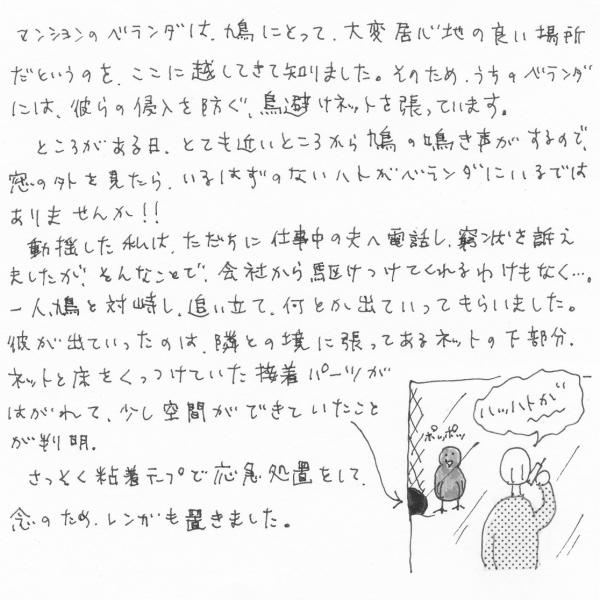 マンションのベランダは、鳩にとって、大変居心地の良い場所
だというのを、ここに越してきて知りました。そのため、うちのベランダ
には、彼らの侵入を防ぐ、鳥避けネットを張っています。
ところがある日、とても近いところから鳩の鳴き声がするので、
窓の外を見たら、いるはずのないハトがベランダにいるでは
ありませんか!!
動揺した私は、ただちに仕事中の夫へ電話し、窮状を訴え
ましたが、そんなことで、会社から駆けつけてくれるわけもなく…。
一人、鳩と対峙し、追い立て、何とか出ていってもらいました。
彼が出ていったのは、隣との境に張ってあるネットの下部分。
ネットと床をくっつけていた接着パーツが
はがれて、少し空間ができていたこと
が判明。
さっそく粘着テープで応急処置をして、
念のため、レンガも置きました。
ポッポッ
ハッハトが